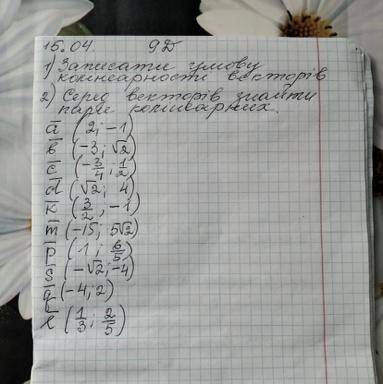 15.04 9Д
1) Записати умову
колінеарности векторів
2) Серед векторів знайти
пари колінарних.
a̅ (2; -1)
b̅ (-3; √2)
c̅ (-3/4; 1/2)
d̅ (√2; 4)
k̅ (3/2, -1)
m̅ (-15; 5√2)
p̅ (1; 6/5)
s̅ (-√2; -4)
q̅ (-4; 2)
ℓ̅ (1/3; 2/5)